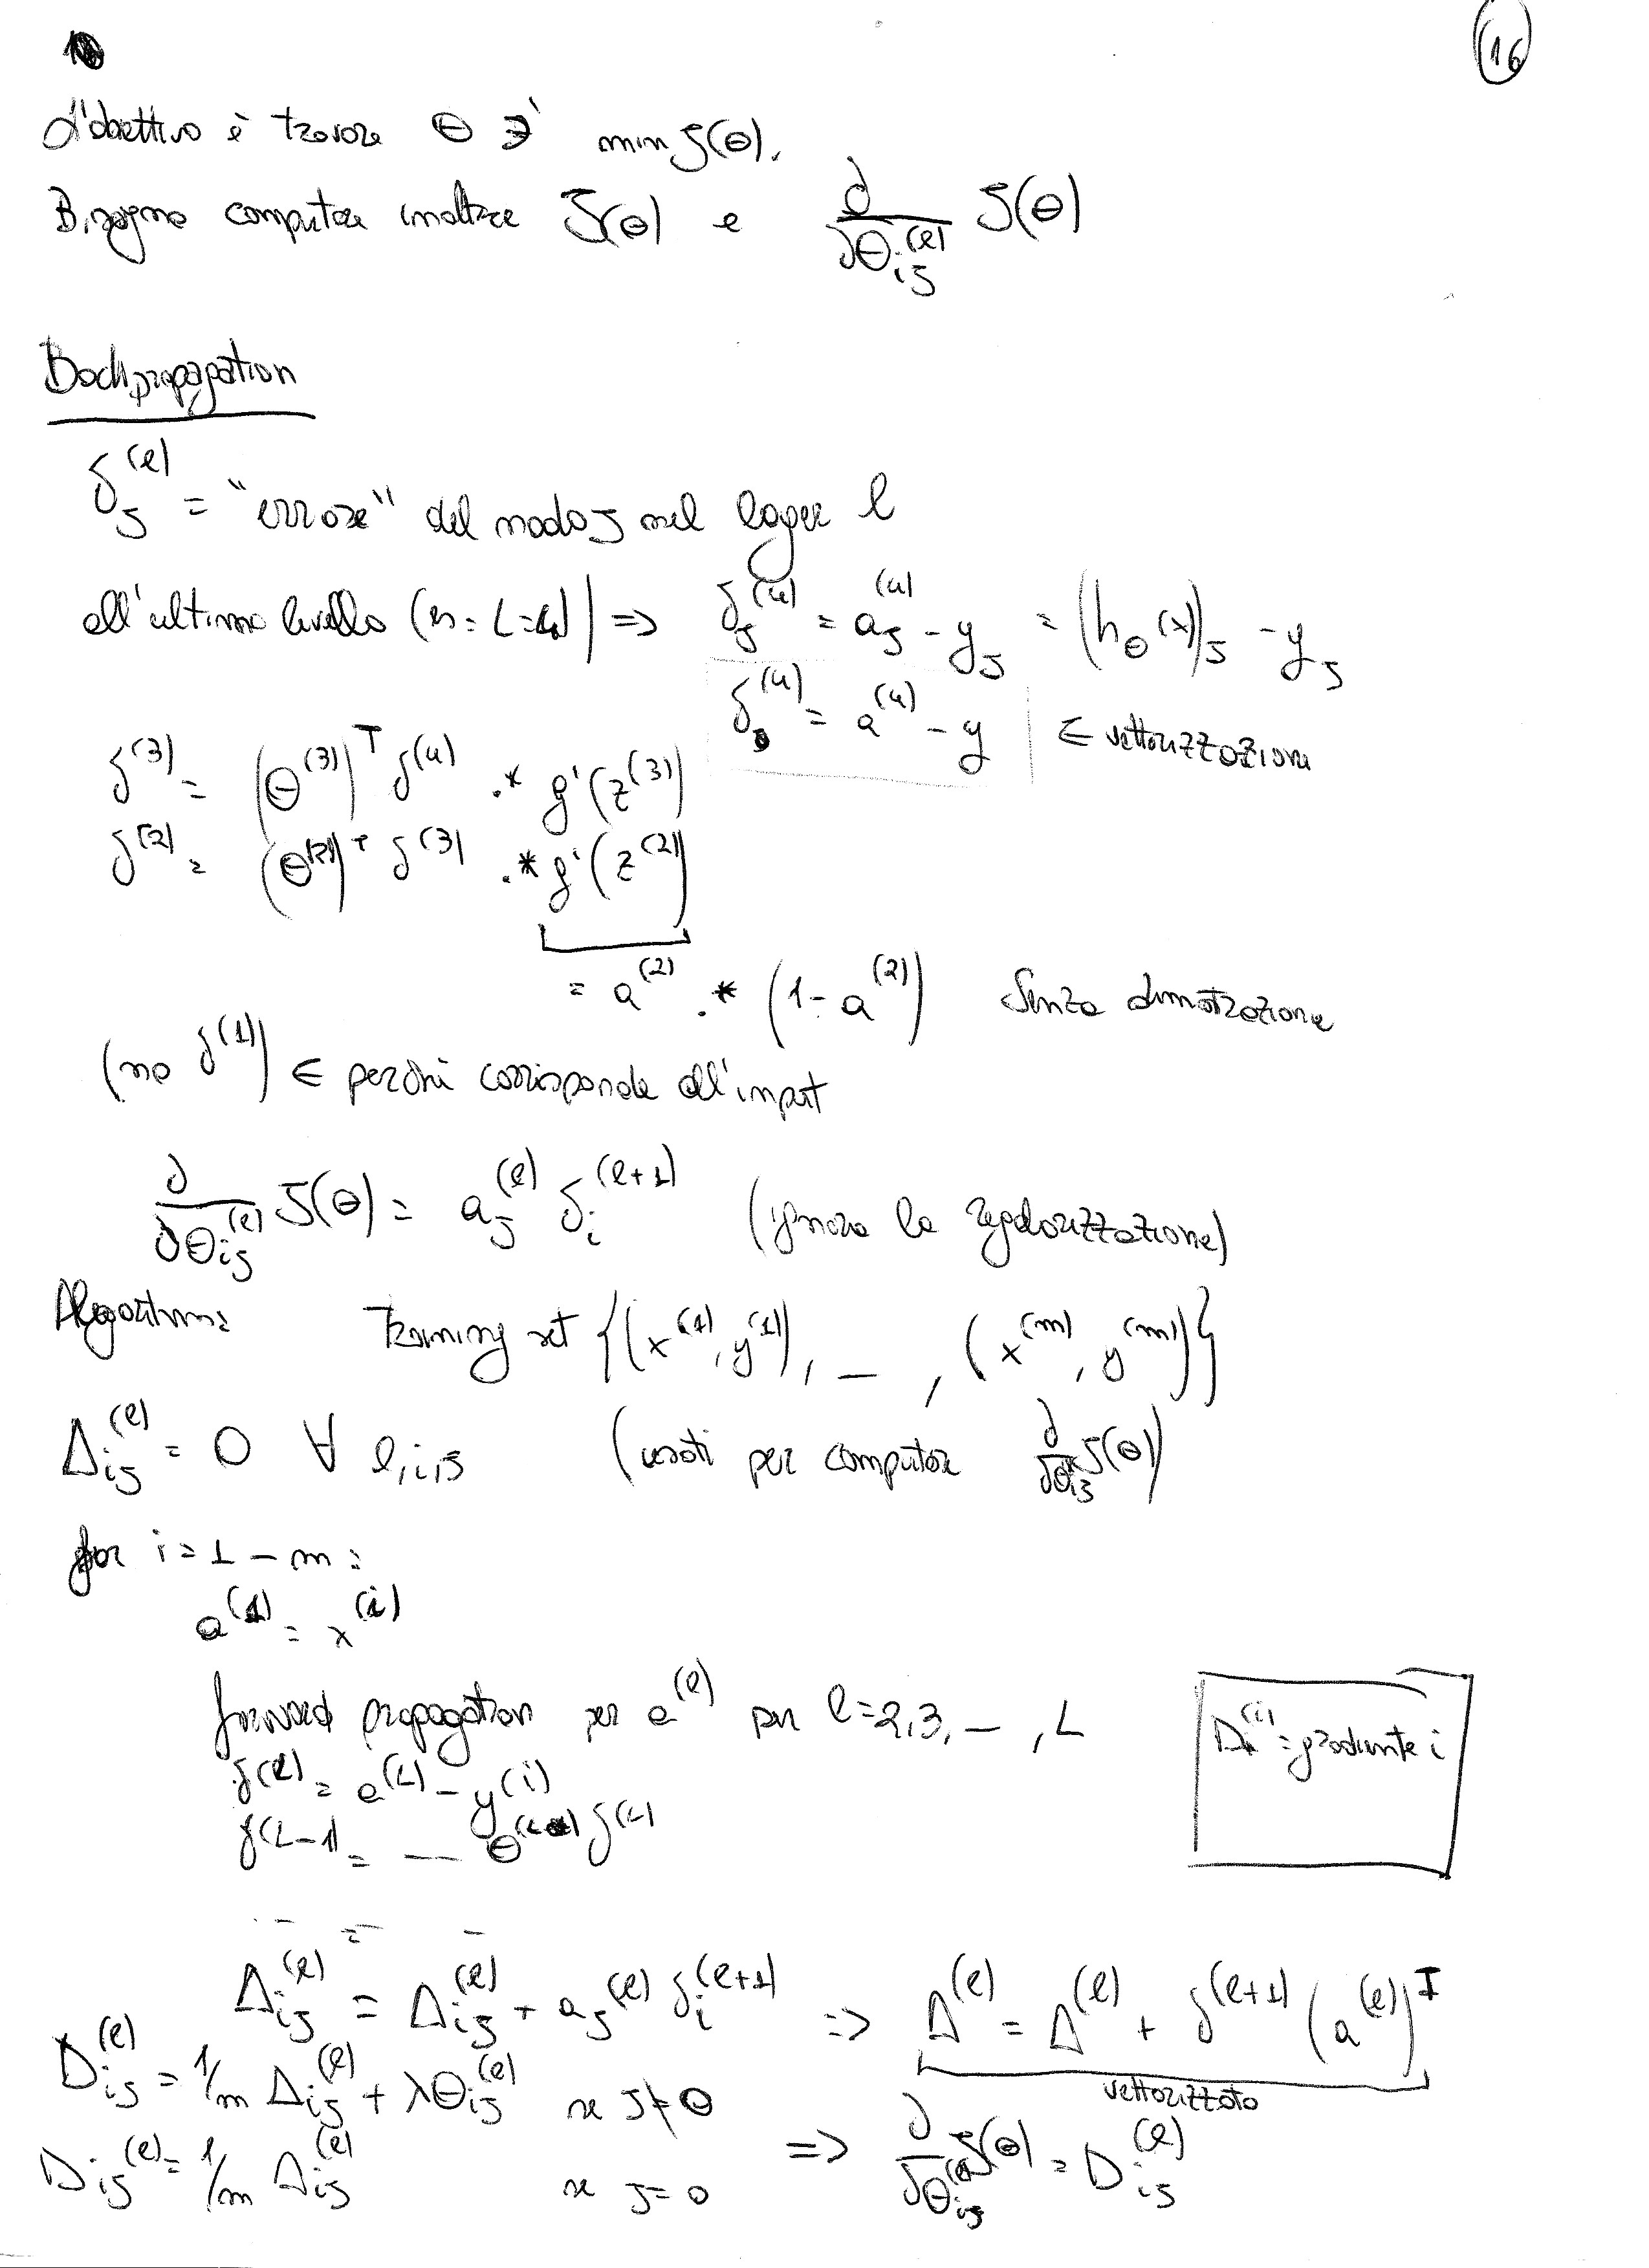 16
L'obiettivo è trovare Θ ∋' min J(Θ).
Bisogna computare inoltre J(Θ) e ∂/∂Θij^(l) J(Θ)
Backpropagation
δj^(l) = "errore" del nodo j nel layer l
all'ultimo livello (n = L = 4) => δj^(4) = aj^(4) - yj = (hΘ(x))j - yj
δ^(4) = a^(4) - y ∈ vettorizzazione
δ^(3) = (Θ^(3))^T δ^(4) .* g'(z^(3))
δ^(2) = (Θ^(2))^T δ^(3) .* g'(z^(2))
= a^(2) .* (1 - a^(2)) Senza dimostrazione
(no δ^(1)) ∈ perché corrisponde all'input
∂/∂Θij^(l) J(Θ) = aj^(l) δi^(l+1) (ignora la regolarizzazione)
Algoritmo: Training set {(x^(1), y^(1)), _ , (x^(m), y^(m))}
Δij^(l) = 0 ∀ l,i,j (usati per computare ∂/∂Θij J(Θ))
for i = 1 - m :
a^(1) = x^(i)
forward propagation per a^(l) per l = 2,3, _ , L
δ^(L) = a^(L) - y^(i)
δ^(L-1) = — Θ δ^(L)
Δ^(i) = gradiente i
Δij^(l) = Δij^(l) + aj^(l) δi^(l+1) => Δ^(l) = Δ^(l) + δ^(l+1) (a^(l))^T
vettorizzato
Dij^(l) = 1/m Δij^(l) + λΘij^(l) se j ≠ 0
Dij^(l) = 1/m Δij^(l) se j = 0 => ∂/∂Θij^(l) J(Θ) = Dij^(l)